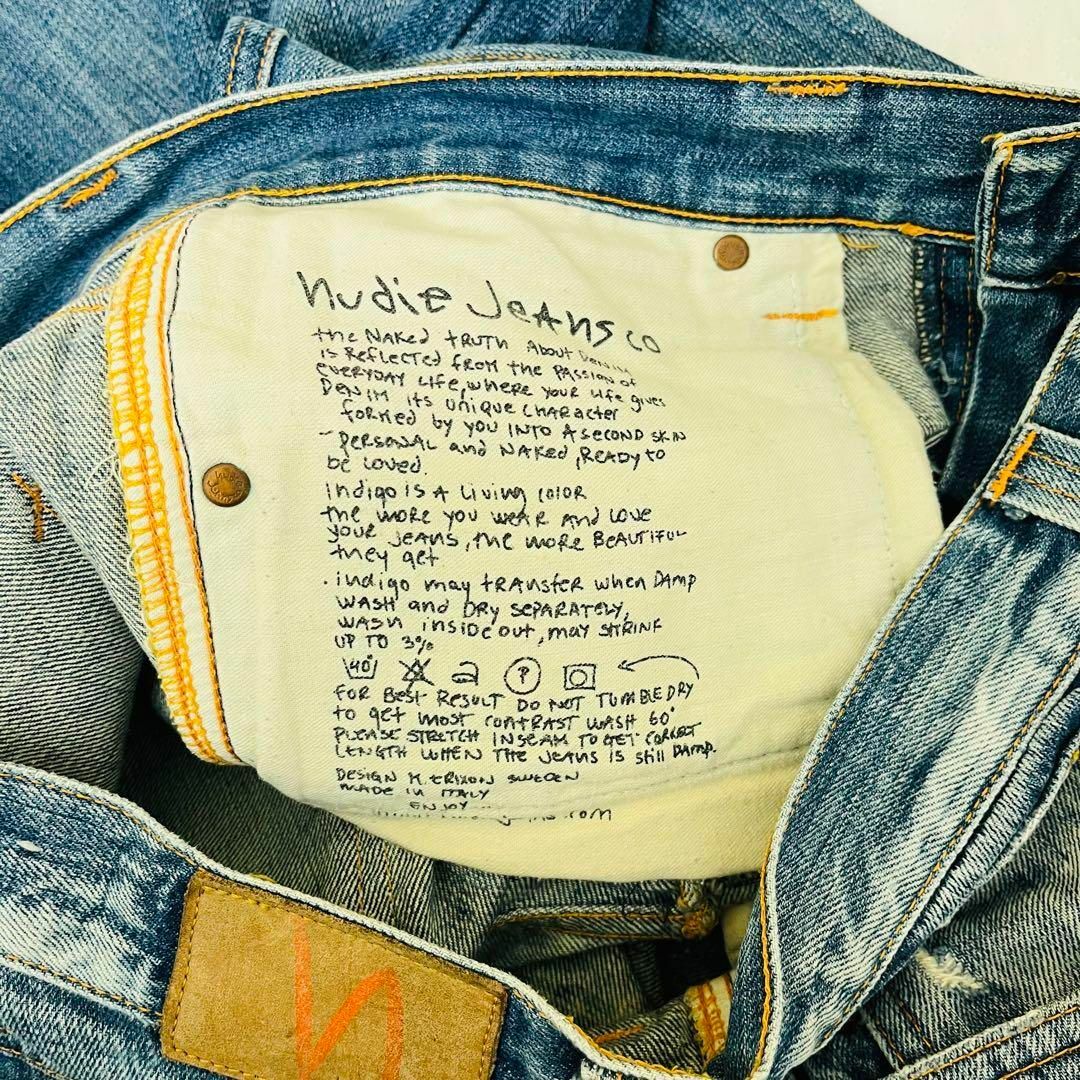 nudie Jeans co
the NAKed tRUTH About Denim
is ReFLECTed from the PAssion of
everyDAY LiFe, where your Life gives
DENIM its Unique CHARActer
formed by you INTO A second SKIN
- PERSONAL and NAKed, READY to
be loved.
indigo IS A Living color
the more you weAR And Love
your jeans, the more BeAUTIFUL
they get
. indigo may tRANsfer when DAMP
WASH and DRY SEPARATELY,
WASH insideout, may SHRINK
UP TO 3%
40° P
FOR Best Result DO NOT TUMBLE DRY
to get most CONTRAST WASH 60°
PLEASE STRETCH INSEAM TO GET CORRECT
LENGTH WHEN THE JEANS IS still DAMP.
DESIGN M. ERIXON SWEDEN
MADE IN ITALY
ENJOY
.com